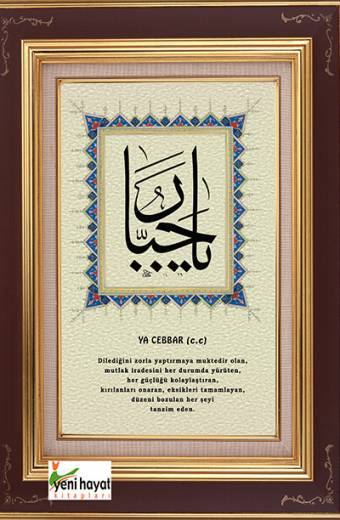 يا جبار
YA CEBBAR (c.c)
Dilediğini zorla yaptırmaya muktedir olan,
mutlak iradesini her durumda yürüten,
her güçlüğü kolaylaştıran,
kırılanları onaran, eksikleri tamamlayan,
düzeni bozulan her şeyi
tanzim eden.
yeni hayat
kitapları